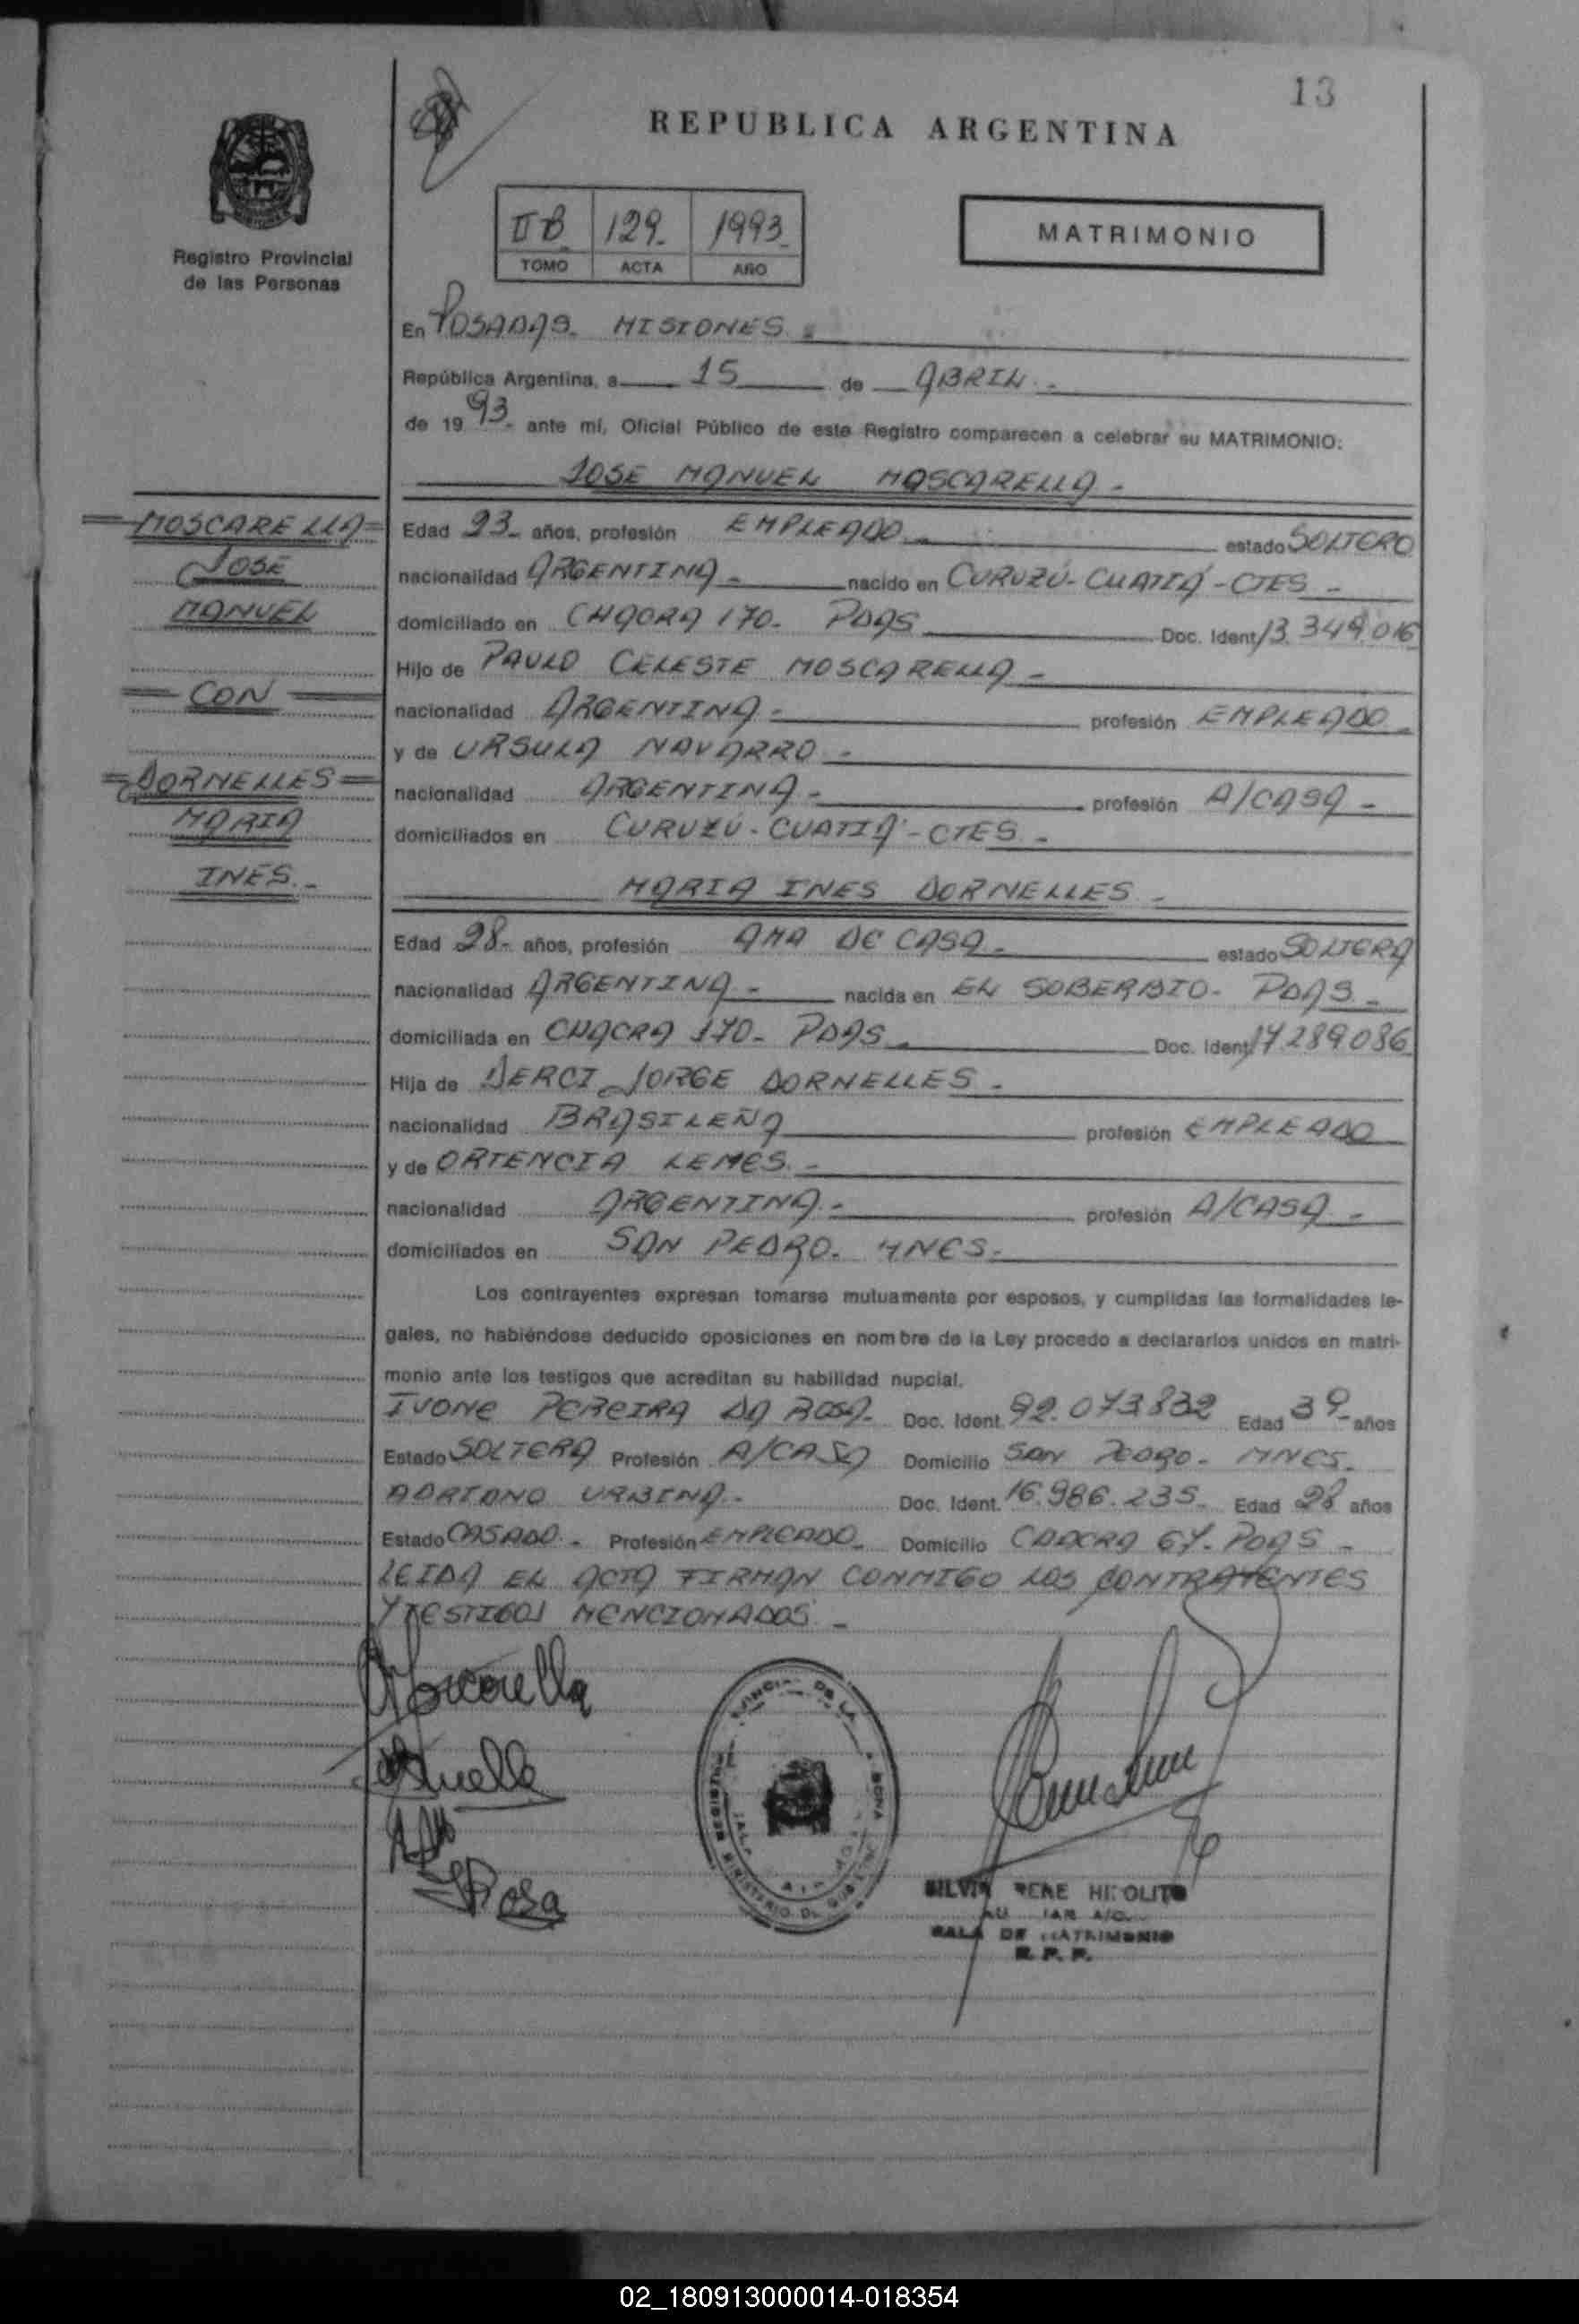 13
REPUBLICA ARGENTINA
Registro Provincial
de las Personas
II B 129. 1993
TOMO ACTA AÑO
MATRIMONIO
En POSADAS. MISIONES.
República Argentina, a 15 de ABRIL.
de 19 93. ante mí, Oficial Público de este Registro comparecen a celebrar su MATRIMONIO:
JOSE MANUEL MOSCARELLA.
MOSCARELLA
JOSE
MANUEL
CON
DORNELLES
MARIA
INES.
Edad 33. años, profesión EMPLEADO. estado SOLTERO
nacionalidad ARGENTINA. nacido en CURUZÚ-CUATIÁ-CTES.
domiciliado en CHACRA 170. PDAS Doc. Ident 13.349.016
Hijo de PAULO CELESTE MOSCARELLA.
nacionalidad ARGENTINA. profesión EMPLEADO.
y de URSULA NAVARRO.
nacionalidad ARGENTINA. profesión A/CASA.
domiciliados en CURUZÚ-CUATIÁ-CTES.
MARIA INES DORNELLES.
Edad 28. años, profesión AMA DE CASA. estado SOLTERA
nacionalidad ARGENTINA. nacida en EL SOBERBIO. PDAS.
domiciliada en CHACRA 170. PDAS. Doc. Ident 17.289.086
Hija de DERCI JORGE DORNELLES.
nacionalidad BRASILEÑA profesión EMPLEADO
y de ORTENCIA LEMES.
nacionalidad ARGENTINA. profesión A/CASA.
domiciliados en SAN PEDRO. MNES.
Los contrayentes expresan tomarse mutuamente por esposos, y cumplidas las formalidades le-
gales, no habiéndose deducido oposiciones en nombre de la Ley procedo a declararlos unidos en matri-
monio ante los testigos que acreditan su habilidad nupcial.
IVONE PEREIRA DA ROSA. Doc. Ident. 92.073.832 Edad 39. años
Estado SOLTERA Profesión A/CASA Domicilio SAN PEDRO. MNES.
ADRIANO URBINA. Doc. Ident. 16.986.235. Edad 28 años
Estado CASADO. Profesión EMPLEADO. Domicilio CHACRA 67. PDAS.
LEIDA EL ACTA FIRMAN CONMIGO LOS CONTRAYENTES
Y TESTIGOS MENCIONADOS.
Moscarella
Rosa
SALA DE MATRIMONIO
R. P. P.
02_180913000014-018354